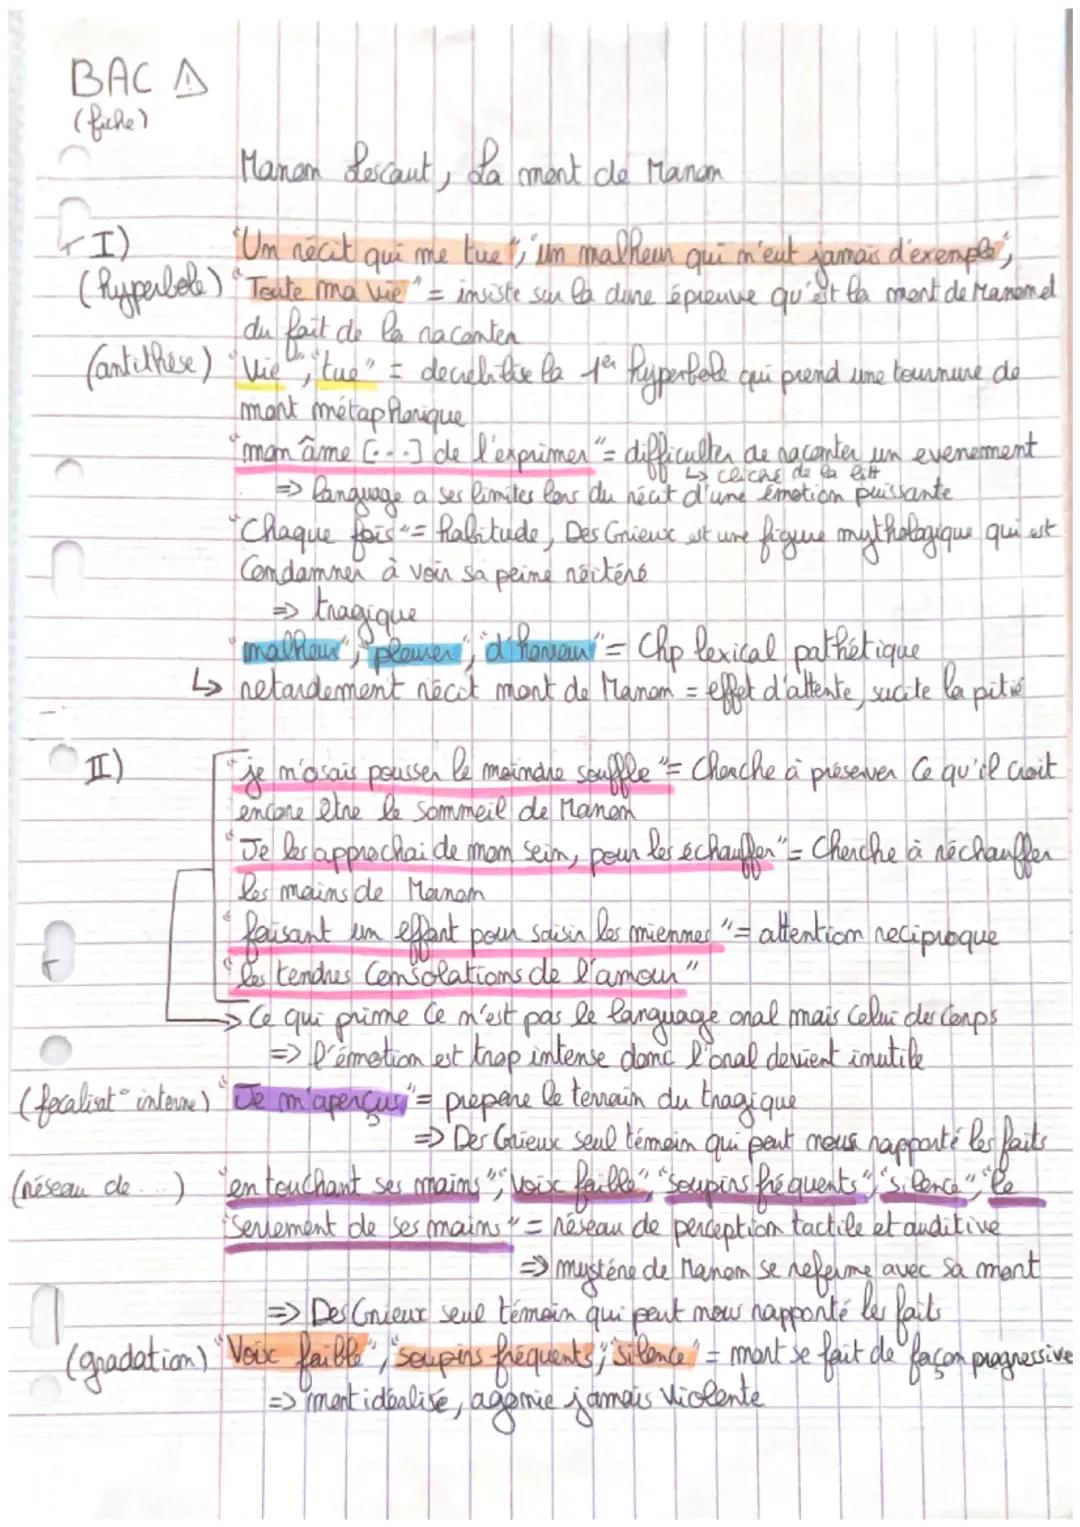 BAC ⚠
(fiche)
Manon Lescaut, La mort de Manon
I) "Un récit qui me tue", "un malheur qui n'eut jamais d'exemple",
(hyperbole) "Toute ma vie" = insiste sur la dure épreuve qu'est la mort de Manon et
du fait de la raconter
(antithèse) "Vie", "tue" = decrebilise la 1er hyperbole qui prend une tournure de
mort métaphorique
"mon âme [...] de l'exprimer" = difficulter de raconter un evenement
↳ clichés de la litt
=> language a ses limites lors du récit d'une émotion puissante
"Chaque fois" = habitude, Des Grieux est une figure mythologique qui est
Condamner à voir sa peine réitéré
=> tragique
"malheur", "pleurer", "d'horreur" = Chp lexical pathétique
↳ retardement récit mort de Manon = effet d'attente, sucite la pitié
II) "je n'osais pousser le moindre souffle" = Cherche à préserver Ce qu'il croit
encore être le sommeil de Manon
"Je les approchai de mon sein, pour les échauffer" = Cherche à réchauffer
les mains de Manon
"faisant un effort pour saisir les miennes" = attention reciproque
"les tendres Consolations de l'amour"
→ Ce qui prime Ce n'est pas le language oral mais Celui des Corps
=> l'émotion est trop intense donc l'oral devient inutile
(focalisat° interne) "Je m'aperçus" = prepare le terrain du tragique
=> Des Grieux seul témoin qui peut nous rapporté les faits
(réseau de ...) "en touchant ses mains", "Voix faible", "Soupirs fréquents", "silence", "le
serrement de ses mains" = réseau de perception tactile et auditive
=> mystère de Manon se referme avec sa mort
=> Des Grieux seul témoin qui peut nous rapporté les faits
(gradation) "Voix faible", "soupirs fréquents", "Silence" = mort se fait de façon progressive
=> mort idéalisé, agonie jamais Violente